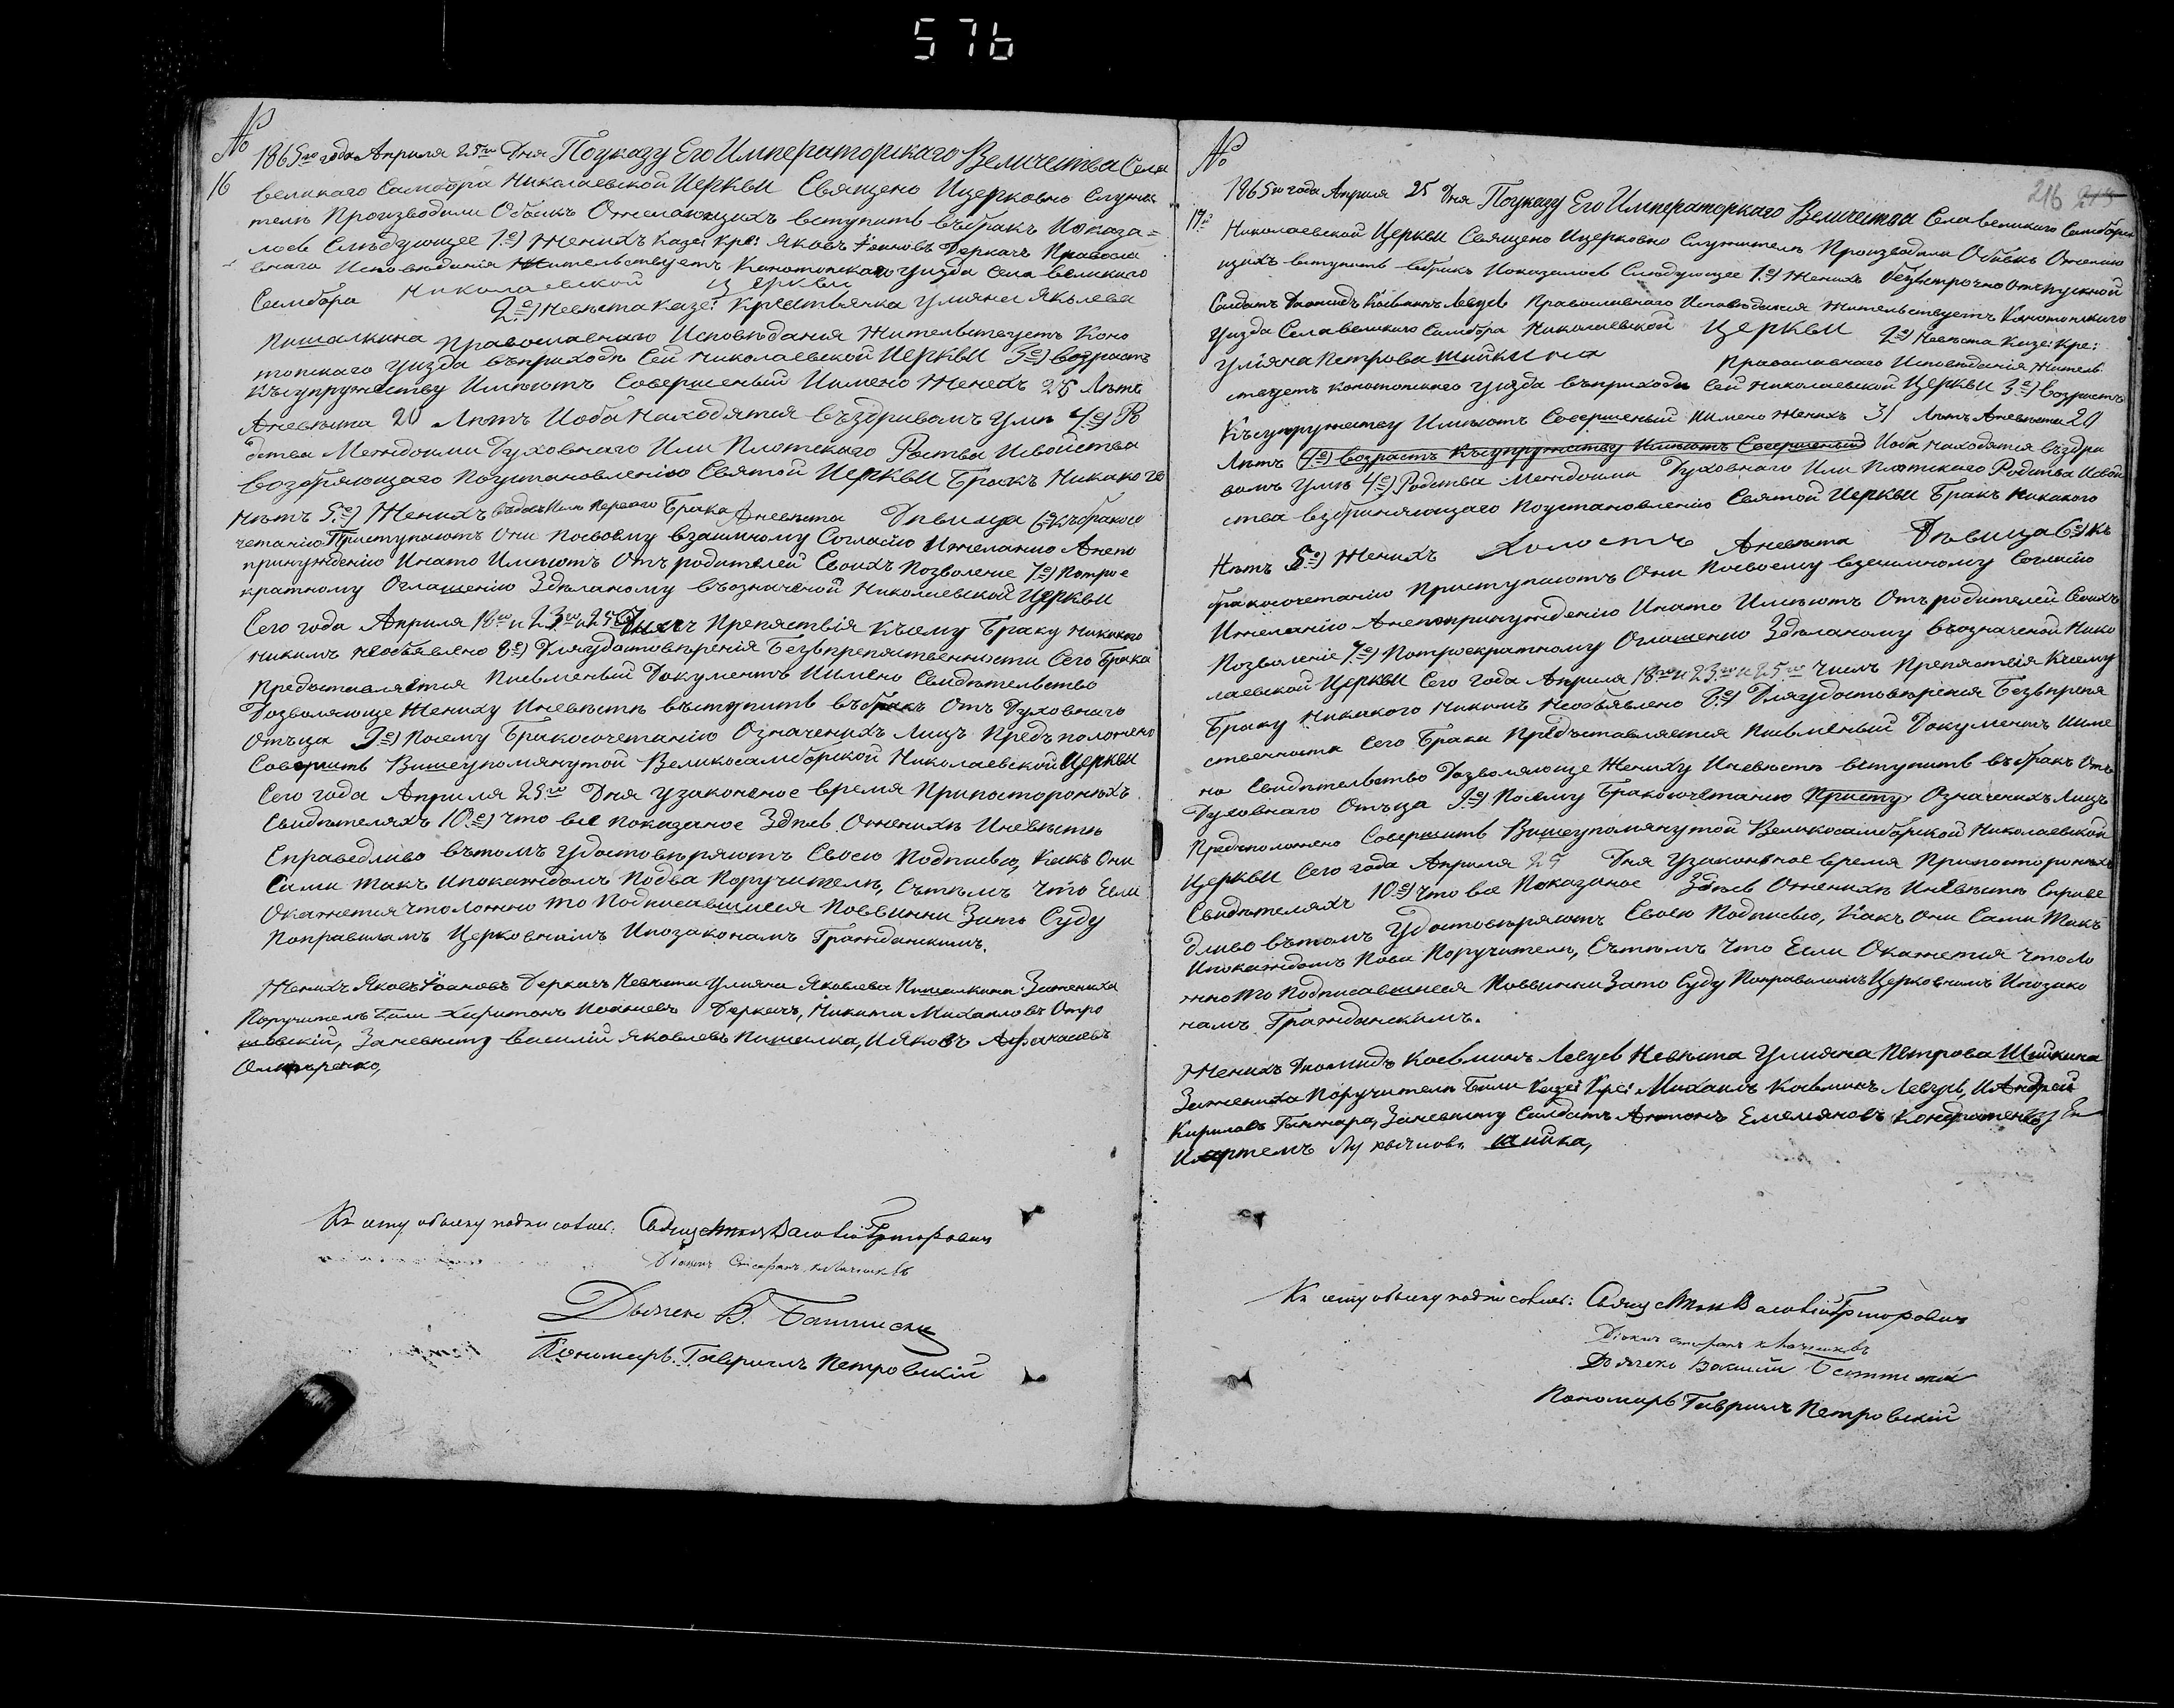 576
№
16
1865го года Апреля 25го Дня По указу Его Императорскаго Величества Села
великаго Самбора Николаевской Церкви Священо Ицерковно Служи
тели Производили Обыскъ Ожелающихъ вступить въбракъ Иоказа=
лось Следующее 1е) Женихъ Казе: Кре: Яковъ Іоановъ Деркачъ Правосла
внаго Исповеданія Жительствуетъ Конотопскаго уизда Села великаго
Самбора Николаевской Церкви
2е) Невеста Казе: Крестьянка Улияна Яковлева
Пишалкина Православнаго Исповеданія Жительствуетъ Коно
топскаго уизда въприходе Сей Николаевской Церкви 3е) возрастъ
Късупружеству Имеютъ Совершеный Имено Женихъ 25 Летъ
Аневеста 20 Летъ Иоба Находятся въздравомъ уме 4е) Ро
дства Междоими Духовнаго Или Плотскаго Роства Исвойства
возбряющаго Поустановленію Святой Церкви Бракъ Никакого
Нетъ 5е) Женихъ первого Брака Аневеста Девица 6е) Къбракосо
четанію Приступаютъ Они Посвоему взаимному Согласію Ижеланию Анепо
принуждению Инато Имеютъ Отъ родителей Своихъ Позволение 7е) Потрое
кратному Оглашению Зделаному въозначеной Николаевской Церкви
Сего года Апреля 18го и 23го и 25го Препяствія Късему Браку Никакого
Никимъ Необъявлено 8е) Дляудостоверения Безъпрепяственности Сего Брака
Предоставляется Писменый Документъ Имено Свидетельство
Дозволяюще Жениху Иневесте въступить въбракъ Отъ Духовнаго
Отъца 9е) Посему Бракосочетанию Означенихъ Лицъ Предъположено
Совершить Вишеупомянутой Великосамборской Николаевской Церкви
Сего года Апреля 25го Дня узаконеное время Припосторонихъ
Свидетеляхъ 10е) что все показаное Здесь Ожинихе Иневесте
Справедливо вътомъ удостоверяютъ Своею Подписью, Какъ Они
Сами такъ Ипокаждомъ Подва Поручители, Сътемъ что Если
Окажется чтоложно то Подписавшиеся Повинни Зато Суду
Поправиламъ Церковнимъ Ипозаконамъ Гражданскимъ.
Женихъ Яковъ Іоановъ Деркачъ Невеста Улияна Яковлева Пишалкина Зажениха
Поручители били Харитонъ Иоановъ Деркачъ, Никита Михаиловъ Отро
шовскій, Заневесту Василій Яковлевъ Пишалка, Ияковъ Афанасьевъ
Къ сему обыску подписались: Священникъ Василій Григоровичъ
Діаконъ Стефанъ
Дьячекъ В.
Пономарь Гавриилъ Петровскій
№
216 215
17е
1865го года Апреля 25 Дня По указу Его Императорскаго Величества Села великаго Самбора
Николаевской Церкви Священо Ицерковно Служители Производили Обыскъ Ожелаю
щихъ вступить въбракъ Показалось Следующее 1е) Женихъ безъсрочно отъпускной
Солдатъ Диомидъ Косьминъ Левусъ Православнаго Исповеданія Жительствуетъ Конотопскаго
уизда Села великаго Самбора Николаевской Церкви 2е) Невеста Казе: Кре:
Улияна Петрова Шийкина Православнаго Исповедания Житель
ствуетъ Конотопскаго уизда въприходе Сей Николаевской Церкви 3е) возрастъ
Късупружеству Имеютъ Совершеный Иимено Женихъ 31 Летъ Аневеста 20
Летъ 4е) возрастъ Късупружеству Имеютъ Совершеный Иоба Находятся въздра
вомъ уме 4е) Родства Междоими Духовнаго Или Плотскаго Родства Исвой
ства възбраняющаго Поустановленію Святой Церкви Бракъ Никакого
Нетъ 5е) Женихъ холостъ Аневеста Девица 6е) Къ
бракосочетанію Приступаютъ Они Посвоему взаимному Согласію
Ижеланию Анепопринуждению Инато Имеютъ Отъ родителей Своихъ
Позволеніе 7е) Потроекратному Оглашению Зделаному въозначеной Нико
лаевской Церкви Сего года Апреля 18го и 23го и 25го Чисъ Препяствія Късему
Браку Никакого Никимъ Необъявлено 8е) Дляудостоверения Безъпрепя
ственности Сего Брака Предъставляется Писменый Документъ Имме
но Свидетельство Дозволяюще Жениху Иневесте вступить въбракъ Отъ
Духовнаго Отъца 9е) Посему Бракосочетанию Присту Означенихъ Лицъ
Предъположено Совершить Вишеупомянутой Великосамборской Николаевской
Церкви Сего года Апреля 25 Дня узаконеное время Припосторонихъ
Свидетеляхъ 10е) что все Показаное Здесь Ожинихе Иневесте Справе
дливо вътомъ удостоверяютъ Своею Подписью, Какъ Они Сами Такъ
Ипокаждомъ Подва Поручители, Сътемъ что Если Окажется чтоло
жно то Подписавшиеся Повинни Зато Суду Поправиламъ Церковнимъ Ипозако
намъ Гражданскимъ.
Женихъ Диомидъ Косьминъ Левусъ Невеста Улияна Петрова Шийкина
Зажениха Поручители били Казе: Кре: Михаилъ Косьминъ Левусъ, Иандрей
Кириловъ Заневесту Солдатъ Антонъ Емелияновъ Кондратенко
шийка,
Къ сему обыску подписались: Священникъ Василій Григоровичъ
Діаконъ Стефанъ
Дьячекъ Василій
Пономарь Гавриилъ Петровскій